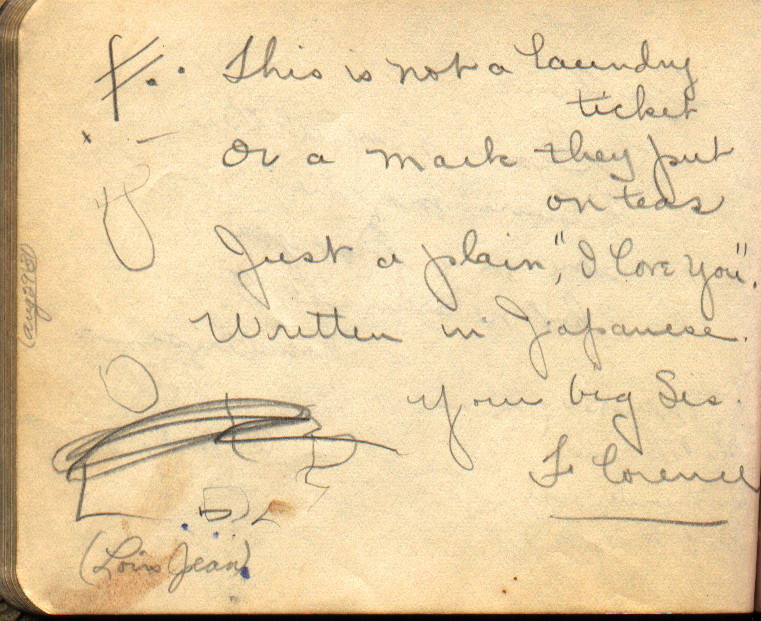 This is not a laundry
ticket
Or a mark they put
on teas
Just a plain, "I Love You".
Written in Japanese.
Your big Sis.
Florence
(Lois Jean)